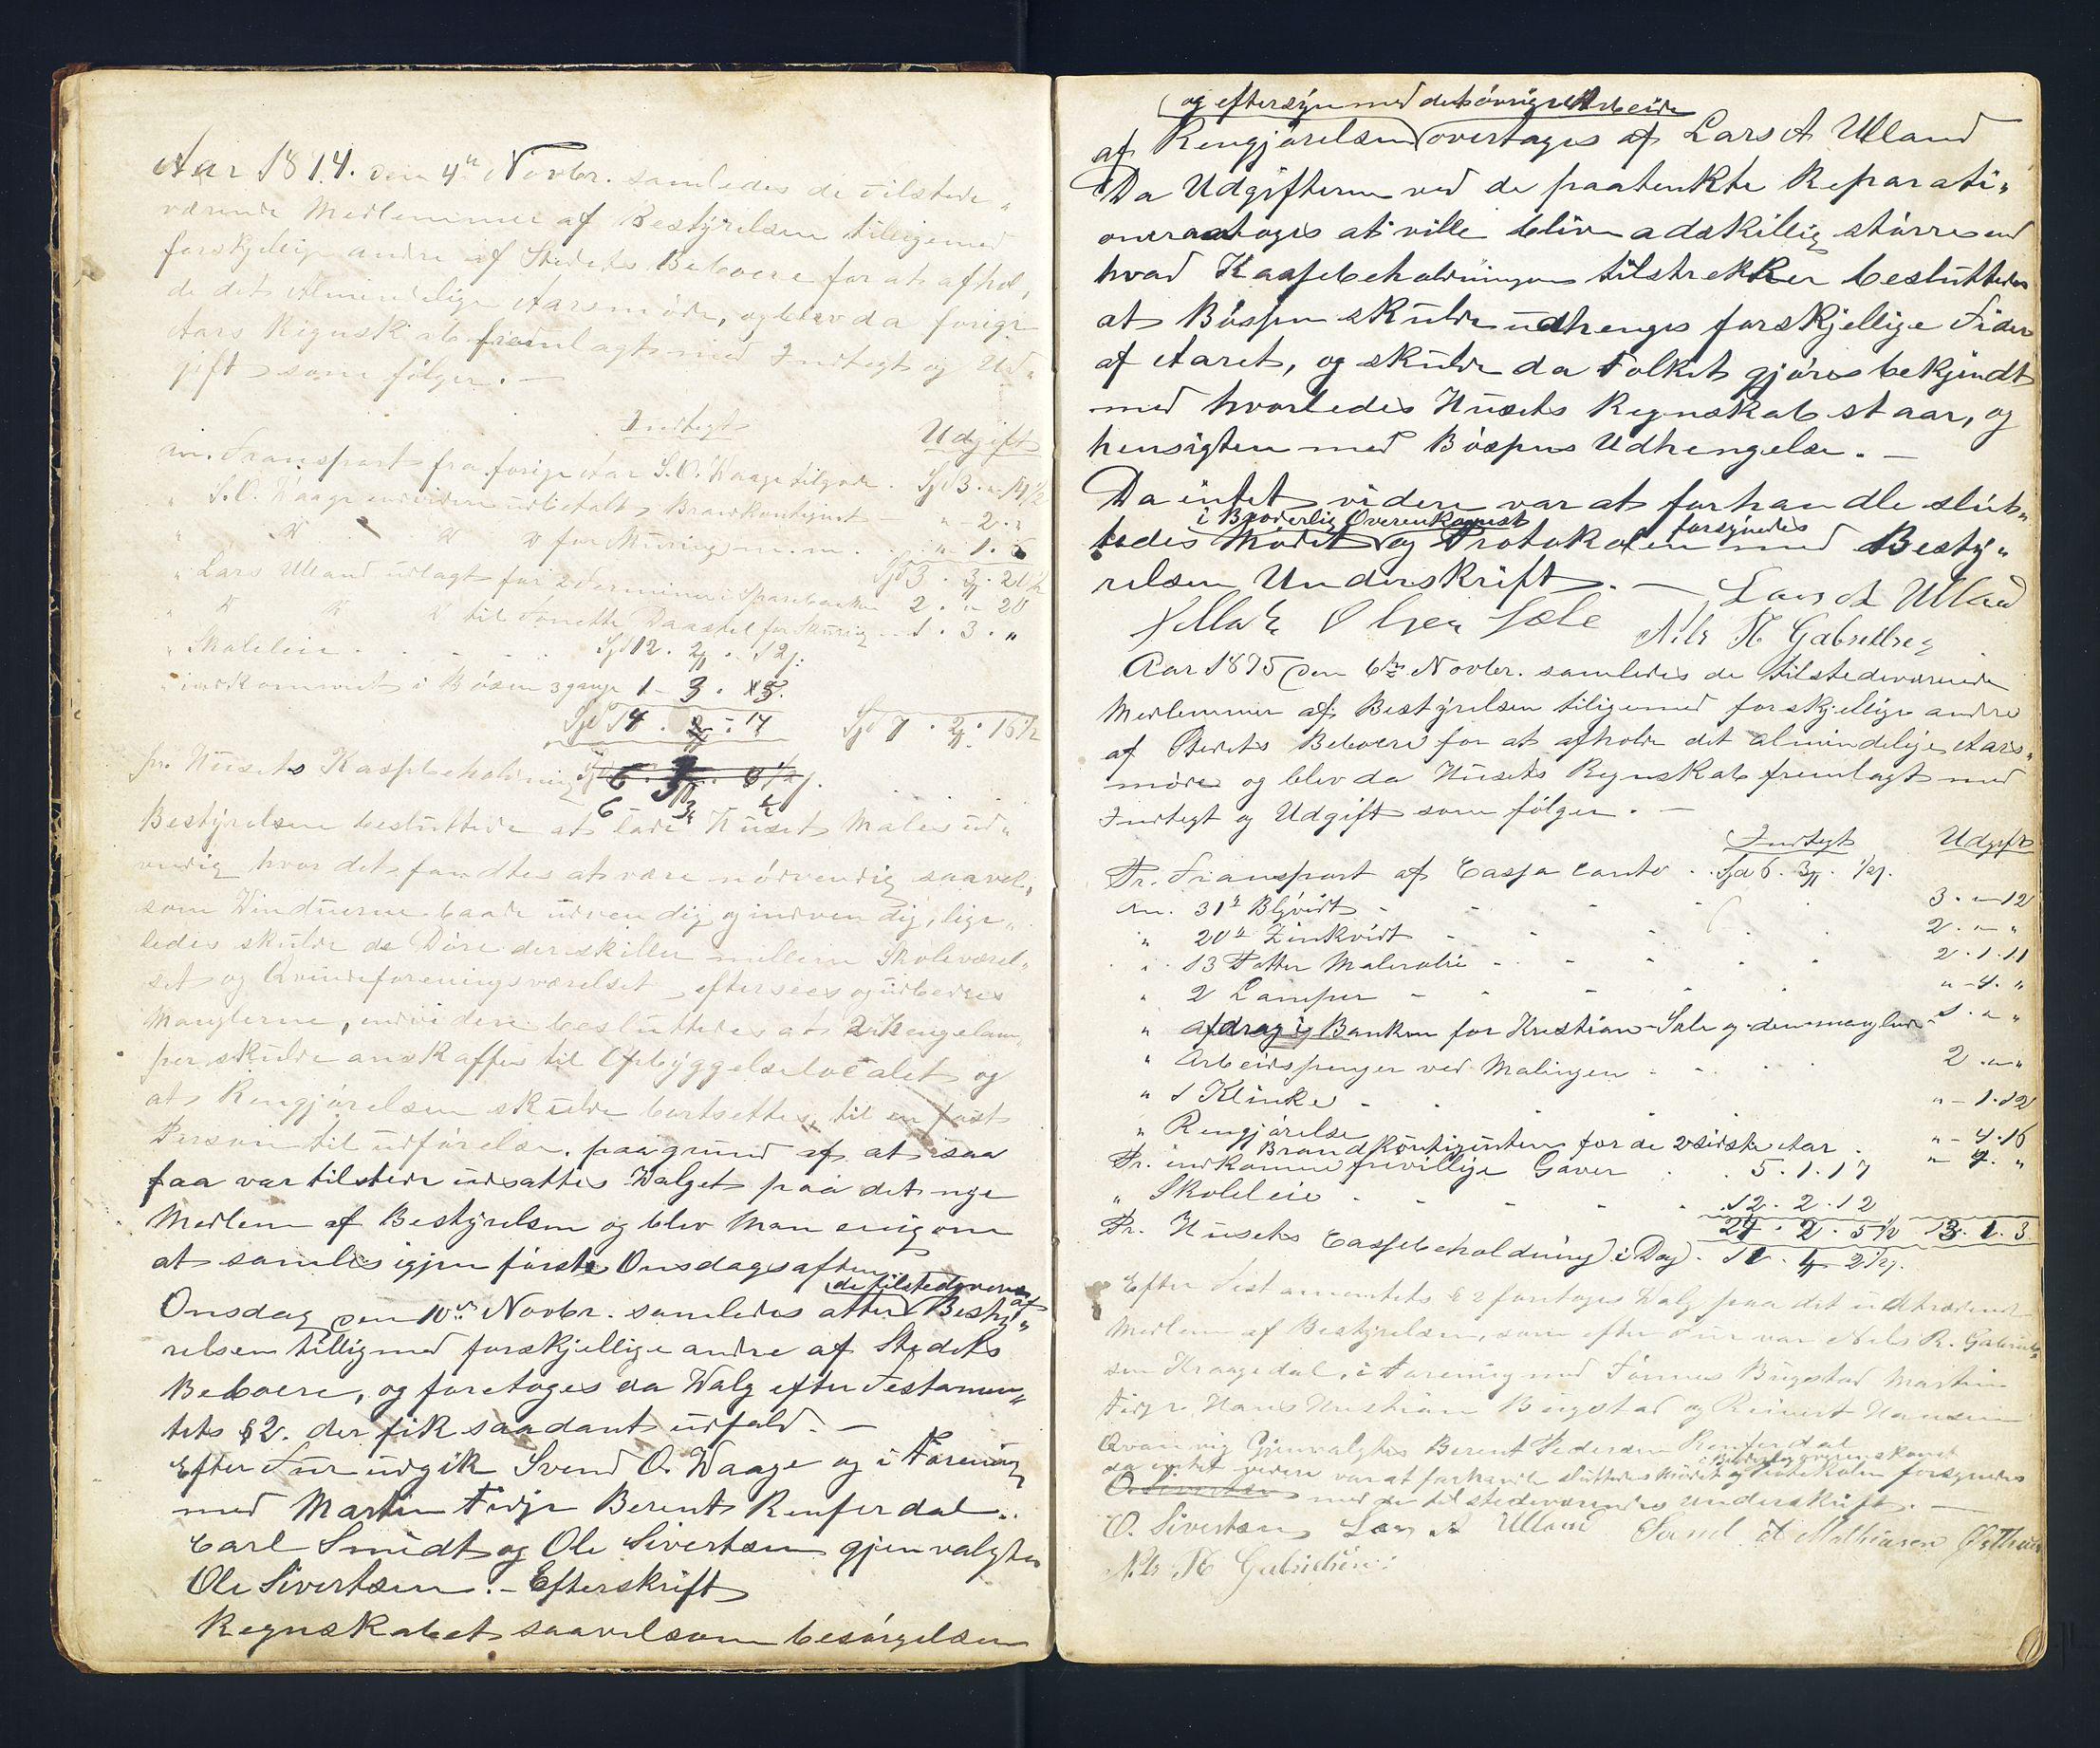 Aar 1874. den 4de Novbr. samledes de tilstede„
værende Medlemmer af Bestyrelsen tilligemed
forskjellige andre af Stedets Beboere for at afhol„
de det Almindelige Aarsmøde, og blev da forige
Aars Regnskab fremlagt med Indtegt og Ud„
gift som følger. —
Indtegt Udgift
An. Transport fra forige Aar S. O. Waage tilgode . Spd 3 . „ 19 1/2
„ S. O. Waage endvidere udbetalt Brandkontigent — „ - 2 . „
„ D D D for Skuring m. m. . „ 1. 6
Spd 3 . 3 . 21 1/2
„ Lars Ulland udlagt for 2 Terminer i Sparebanken 2 . „ 20
„ D D D til Tønette Daastøl for Skuring . . 1 . 3 . „
„ Skoleleie . . . . . Spd 12 . 2 . 12 s.
„ indkommet i Bøsen 3 gange 1 - 3 .
Spd 14 . - 14 Spd 7 . 2 . 16 1/2
pr. Husets Kassebeholdning Spd 6 . 3 . 8 1/2 s.
6 3 1/2
Bestyrelsen besluttede at lade Huset Males ud„
vendig hvor det fandtes at være nødvendig saavel„
som Winduerne baade udvendig og indvendig, lige„
ledes skulde de Døre der skiller mellem Skoleværel„
set og Qvindeforeningsværelset eftersees og udbedres
Manglerne, endvidere besluttedes at 2 Hengelam„
per skulde anskaffes til Opbyggelselocalet og
at Rengjørelsen skulde bortsettes til en fast
Person til udførelse. paagrund af at saa
faa var tilstede udsattes Valget paa det nye
Medlem af Bestyrelsen og blev Man enig om
at samles igjen første Onsdagsaften.
de tilstedeverende af
Onsdag den 10de Novbr. samledes atter Besty„
relsen tilligmed forskjellige andre af Stedets
Beboere, og foretoges da Walg efter Testamen„
tets §2. der fik saadant udfald. —
Efter Tur udgik Svend O. Waage og i Forening
med Martin Fidje Berent Renferdal..
Carl Smidt og Ole Sivertsen gjenvalgtes
Ole Sivertsen. — Efterskrift
Regnskabet saavelsom besørgelsen
og eftersyn med det øvrige Arbeide
af Rengjørelsen overtages af Lars A Ulland
Da Udgifterne ved de paatenkte Reparati„
oner antoges at ville blive adskillig større end
hvad Kassebeholdningen tilstrekker besluttedes
at Bøssen skulde udhenges forskjellige Tider
af Aaret, og skulde da Folket gjøres bekjendt
med hvorledes Husets Regnskab staar, og
hensigten med Bøssens Udhengelse. —
Da intet videre var at forhandle slut„
i Broderlig Overenkomst forsynedes
tedes Mødet og Protokolen med Besty„
relsen Underskrift. — Lars A Ulland
Olsen Sæle Nils R Gabrielsen
Aar 1875 den 6te Novbr. samledes de tilstedeværende
Medlemmer af Bestyrelsen tilligemed forskjellige andre
af Stedets Beboere for at afholde det almindelige Aars„
møde og blev da Husets Regnskab fremlagt med
Indtegt og Udgift som følger. —
Indtegt Udgift
Pr. Transport af Cassa Conto . . Spd 6 . 3 . 1/2 s.
An. 31 Blyvidt - - - - 3 . „ 12
„ 20 Zinkvidt - - - - 2 . „ „
„ 13 Potter Malerolie - - - 2 . 1 . 11
„ 2 Lamper - - - „ - 4 . „
„ afdrag i Banken for Kristian Sæle og „ „
„ Arbeidspenger ved Malingen - - 2 . „ „
„ 1 Klinke - . . „ - 1 . 12
„ Rengjørelse . . „ - 4 . 16
„ Brandkontigenten for de 2 sidste Aar . „ 4. „
Pr. indkomne frivillige Gaver . 5 . 1 . 17
„ Skoleleie . - - - 12 . 2 . 12
24 . 2 . 5 1/2 13 . 1 . 3
Pr. Husets Cassebeholdning i Dag . 11 . 2 1/2 s.
Efter Testamentets § 2 foretoges Walg paa det udtrædende
Medlem af Bestyrelsen, som efter Tur var Nils R. Gabriel„
sen Kraagedal, i Forening med Tønnes Bugstad Martin
Fidje Hans Kristian Bugstad og Reinert Hansen
Qvanvig Gjenvalgtes Berent Pedersen Renferdal
i Broderlig overenskomst
da intet videre var at forhandle sluttedes Mødet og Protokolen forsynedes
O. Sivertsen med de tilstedeværendes Underskrift. —
O. Sivertsen Lars A Ulland Mathiasen
Nils R Gabrielsen